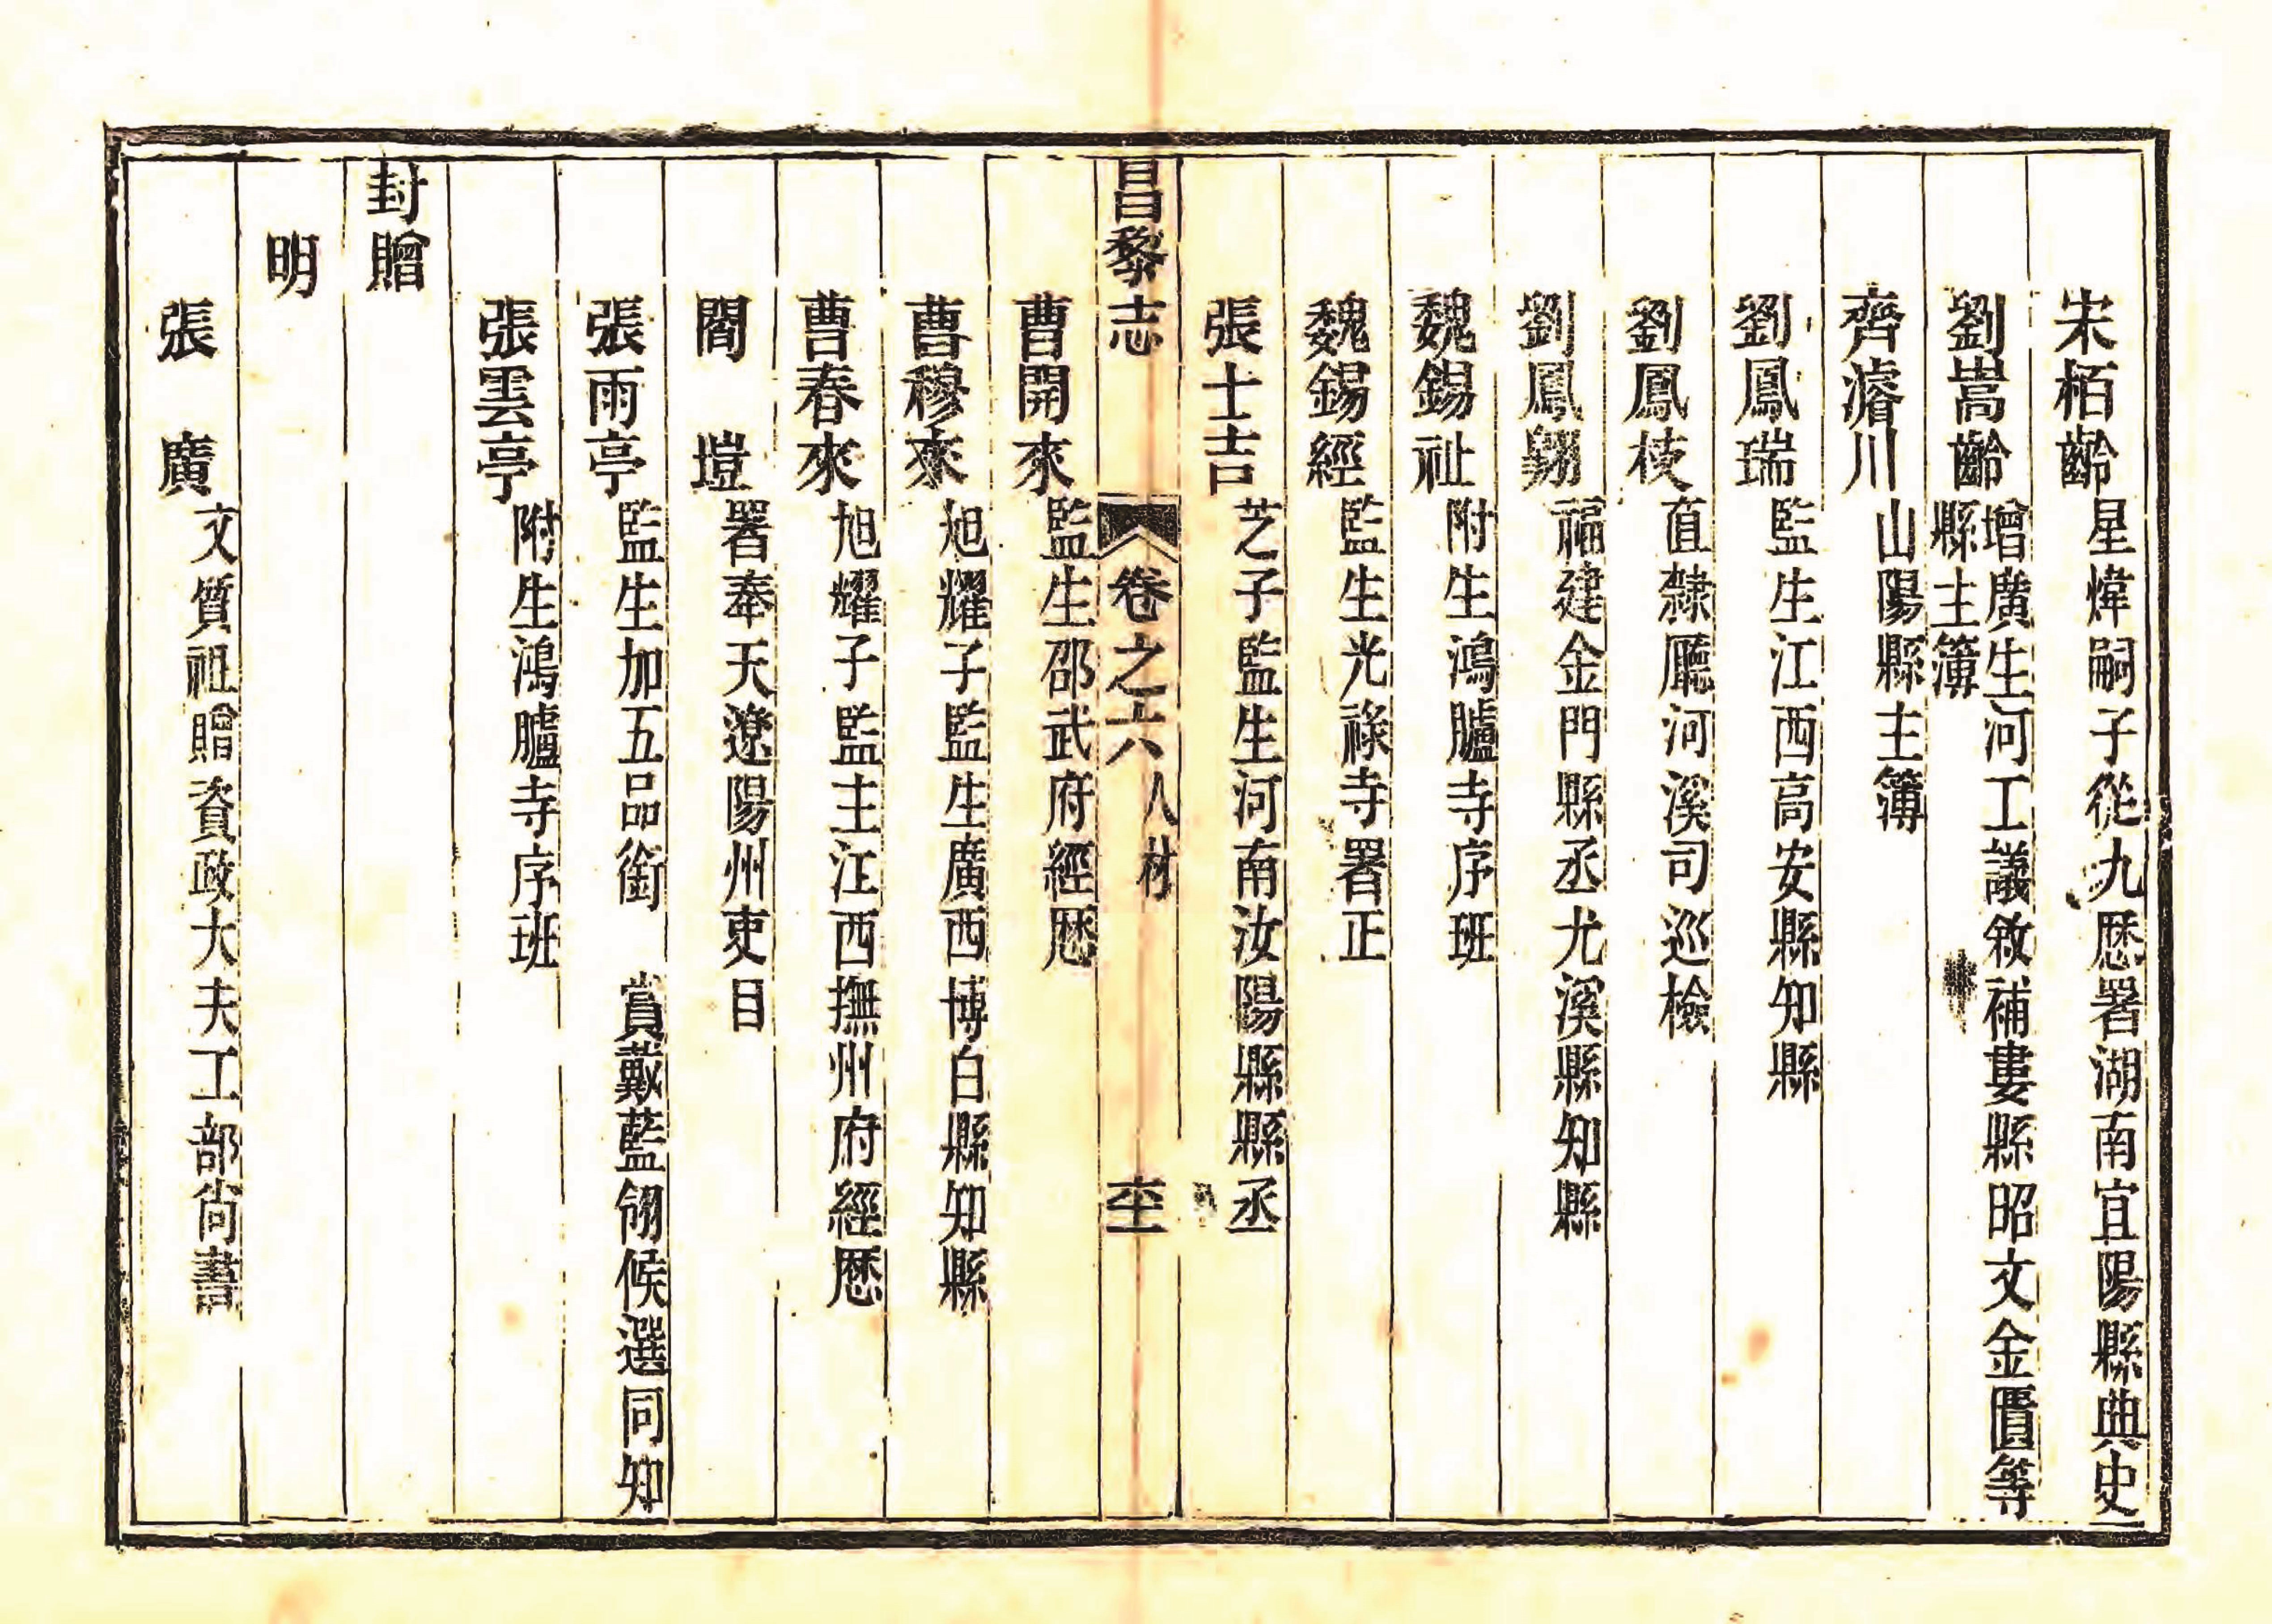 宋栢齡星煒嗣子從九歷署湖南宜陽縣典史
劉嵩齡增廣生河工議敘補婁縣昭文金匱等
縣主簿
齊濬川山陽縣主簿
劉鳳瑞監生江西高安縣知縣
劉鳳枝直隸廳河溪司巡檢
劉鳳翙福建金門縣丞尤溪縣知縣
魏錫祉附生鴻臚寺序班
魏錫經監生光祿寺署正
張士吉芝子監生河南汝陽縣縣丞
昌黎志 卷之六 人材
曹開來監生邵武府經歷
曹穆來旭耀子監生廣西博白縣知縣
曹春來旭耀子監主江西撫州府經歷
閻 塏署奉天遼陽州吏目
張雨亭監生加五品銜 賞戴藍翎候選同知
張雲亭附生鴻臚寺序班
封贈
明
張 廣文質祖贈資政大夫工部尚書